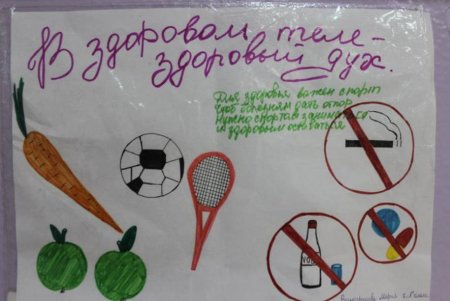 В здоровом теле-
здоровый дух.
Для здоровья важен спорт
Чтоб болезням дать отпор
Нужно спортом заниматься
и здоровым остаться